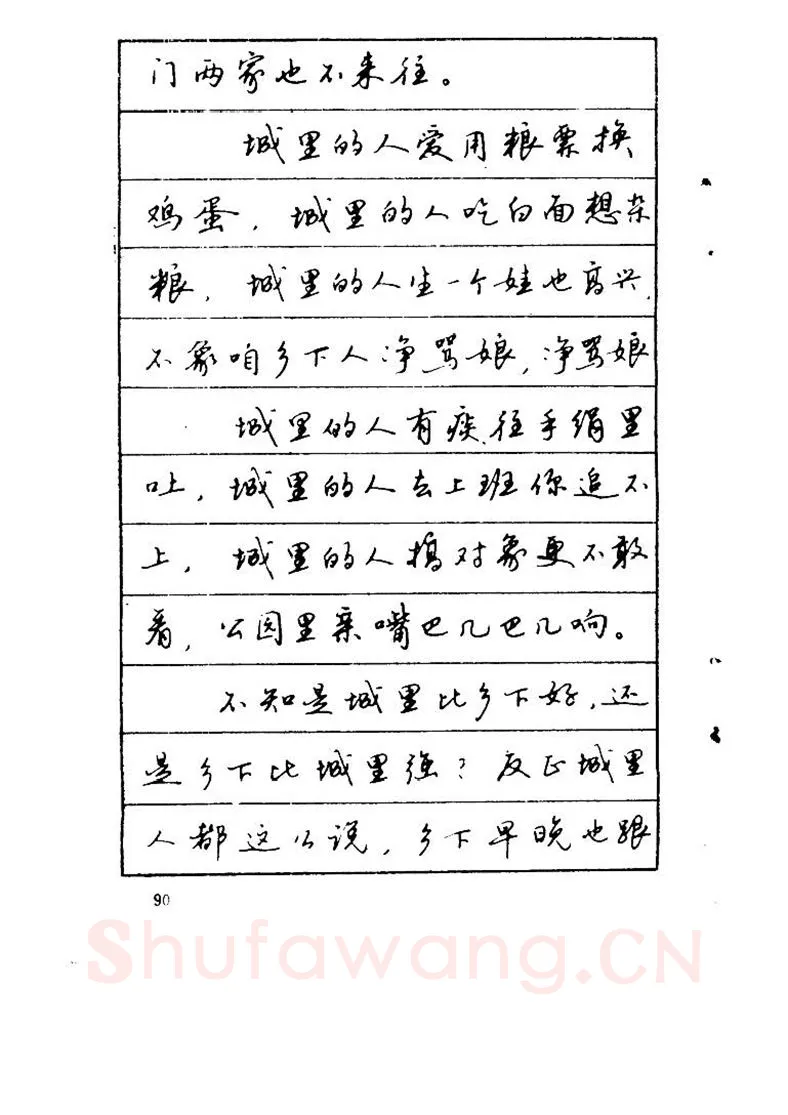 门两家也不来往。
城里的人爱用粮票换
鸡蛋，城里的人吃白面想杂
粮，城里的人生一个娃也高兴，
不象咱乡下人净骂娘，净骂娘
城里的人有痰往手绢里
吐，城里的人去上班你追不
上，城里的人搞对象更不敢
看，公园里亲嘴巴几巴几响。
不知是城里比乡下好，还
是乡下比城里强？反正城里
人都这么说，乡下早晚也跟
90
Shufawang.CN